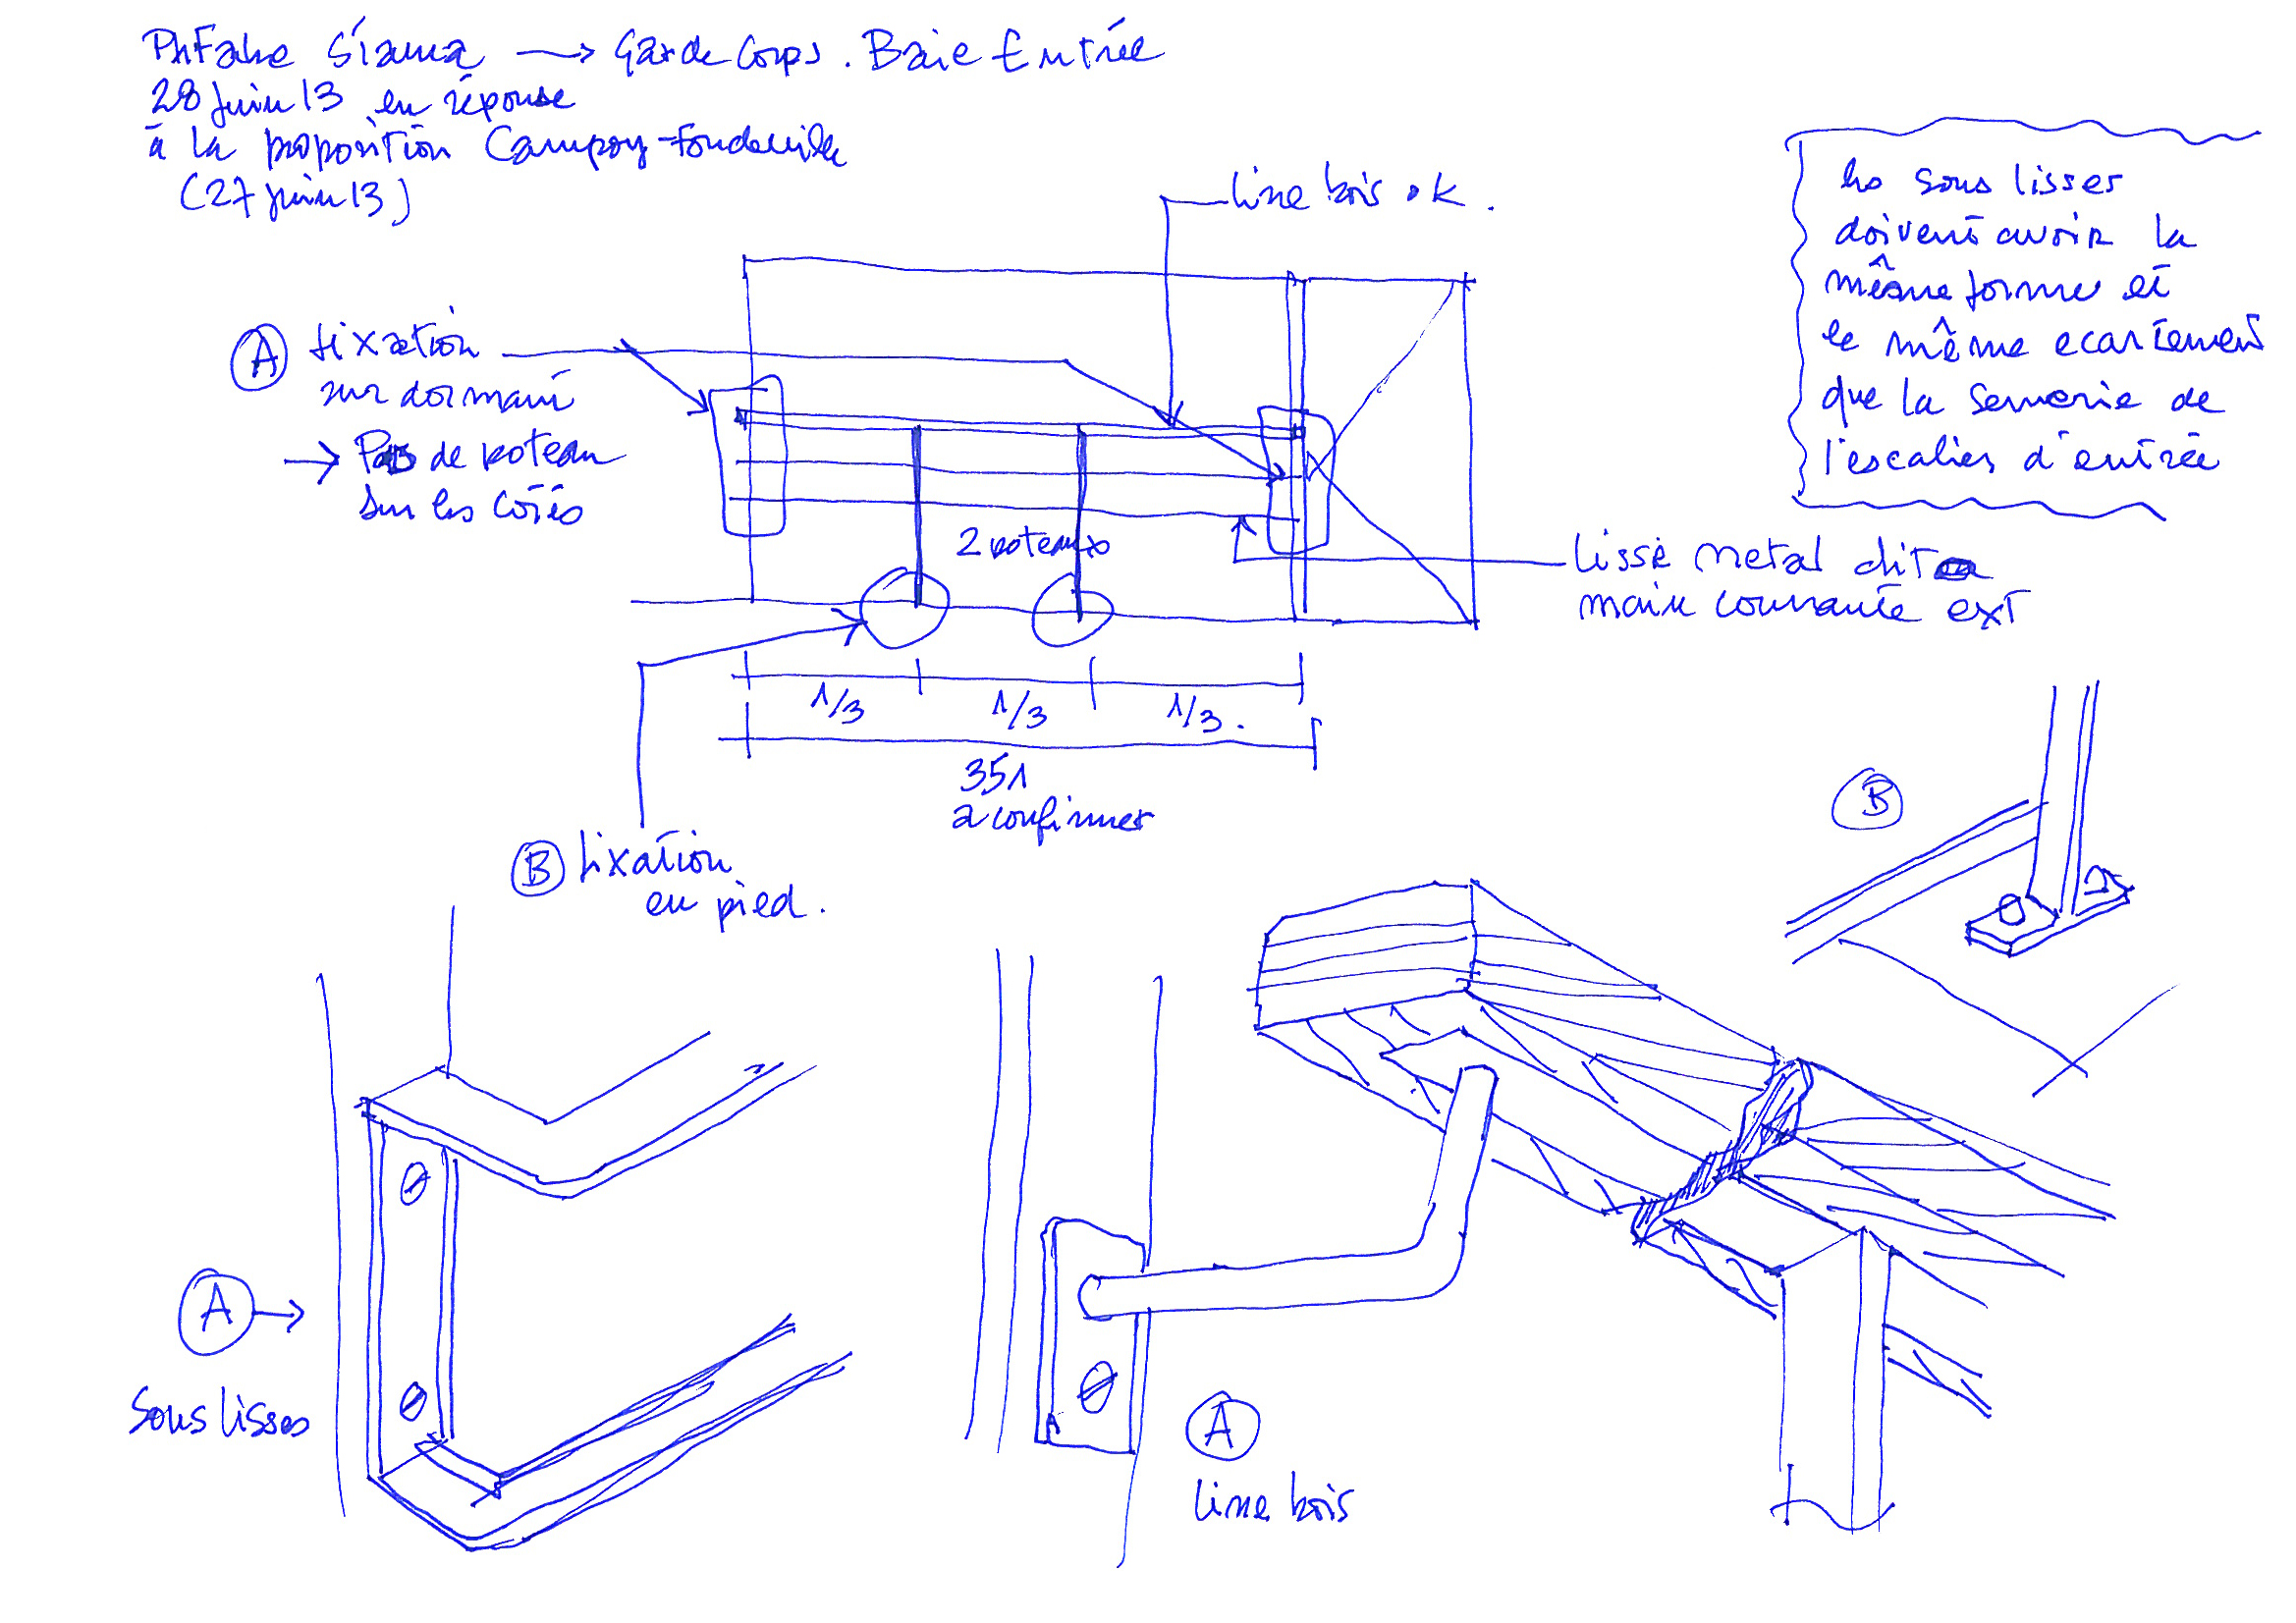 Slama → Garde Corps. Baie Entrée
28 juin 13 en réponse
à la proposition Campoy-Fondeville
(27 juin 13)
lisse bois ok.
les sous lisses
doivent avoir la
même forme et
le même ecartement
que la serrurerie de
l'escalier d'entrée
A fixation
sur dormant
→ Pas de poteau
sur les côtés
2 poteaux
lisse metal dito
main courante ext
1/3 1/3 1/3.
351
a confirmer
B
B fixation
en pied.
A →
Sous lisses
A
lisse bois